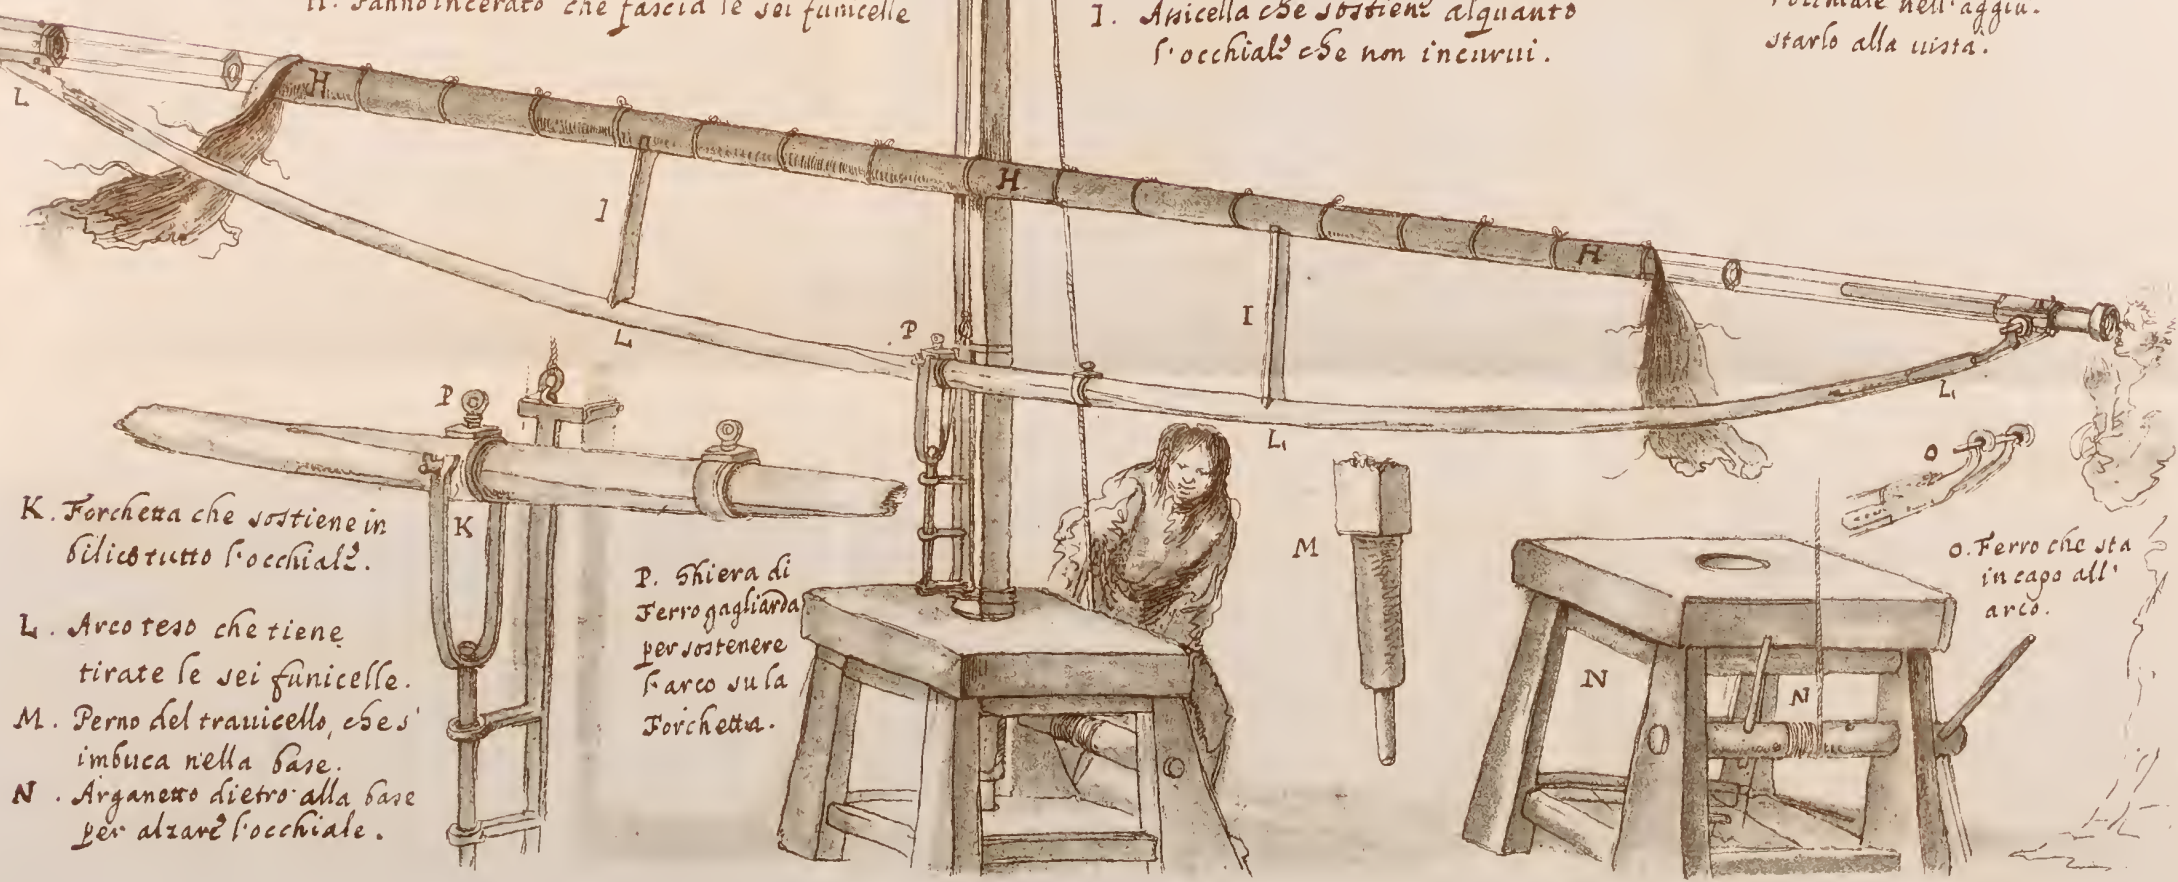 H. Panno incerato che fascia le sei funicelle
I. Assicella che sostiene alquanto
l'occhiale che non incurui.
l'occhiale nell'aggiu-
starlo alla uista.
L
H
H
H
I
I
L
L
L
P
P
K
M
N
N
O
K. Forchetta che sostiene in
bilico tutto l'occhiale.
L. Arco teso che tiene
tirate le sei funicelle.
M. Perno del trauicello, che s'
imbuca nella base.
N. Arganetto dietro alla base
per alzare l'occhiale.
P. Ghiera di
Ferro gagliarda
per sostenere
l'arco su la
Forchetta.
O. Ferro che sta
in capo all'
arco.